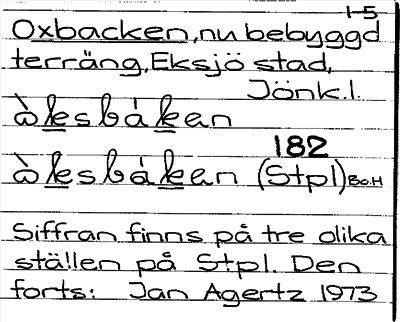 1-5
Oxbacken, nu bebyggd
terräng, Eksjö stad,
Jönk.l.
òkesbákan
182
òkesbákan (Stpl) Bo.H
Siffran finns på tre olika
ställen på Stpl. Den
forts: Jan Agertz 1973